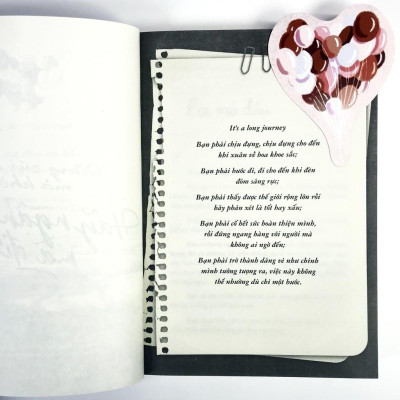 It's a long journey
Bạn phải chịu đựng, chịu đựng cho đến
khi xuân sẽ hoa khoe sắc;
Bạn phải bước đi, đi cho đến khi đèn
đóm sáng rực;
Bạn phải thấy được thế giới rộng lớn rồi
hãy phán xét là tốt hay xấu;
Bạn phải cố hết sức hoàn thiện mình,
rồi đứng ngang hàng với người mà
không ai ngờ đến;
Bạn phải trở thành dáng vẻ như chính
mình tưởng tượng ra, việc này không
thể nhường dù chỉ một bước.